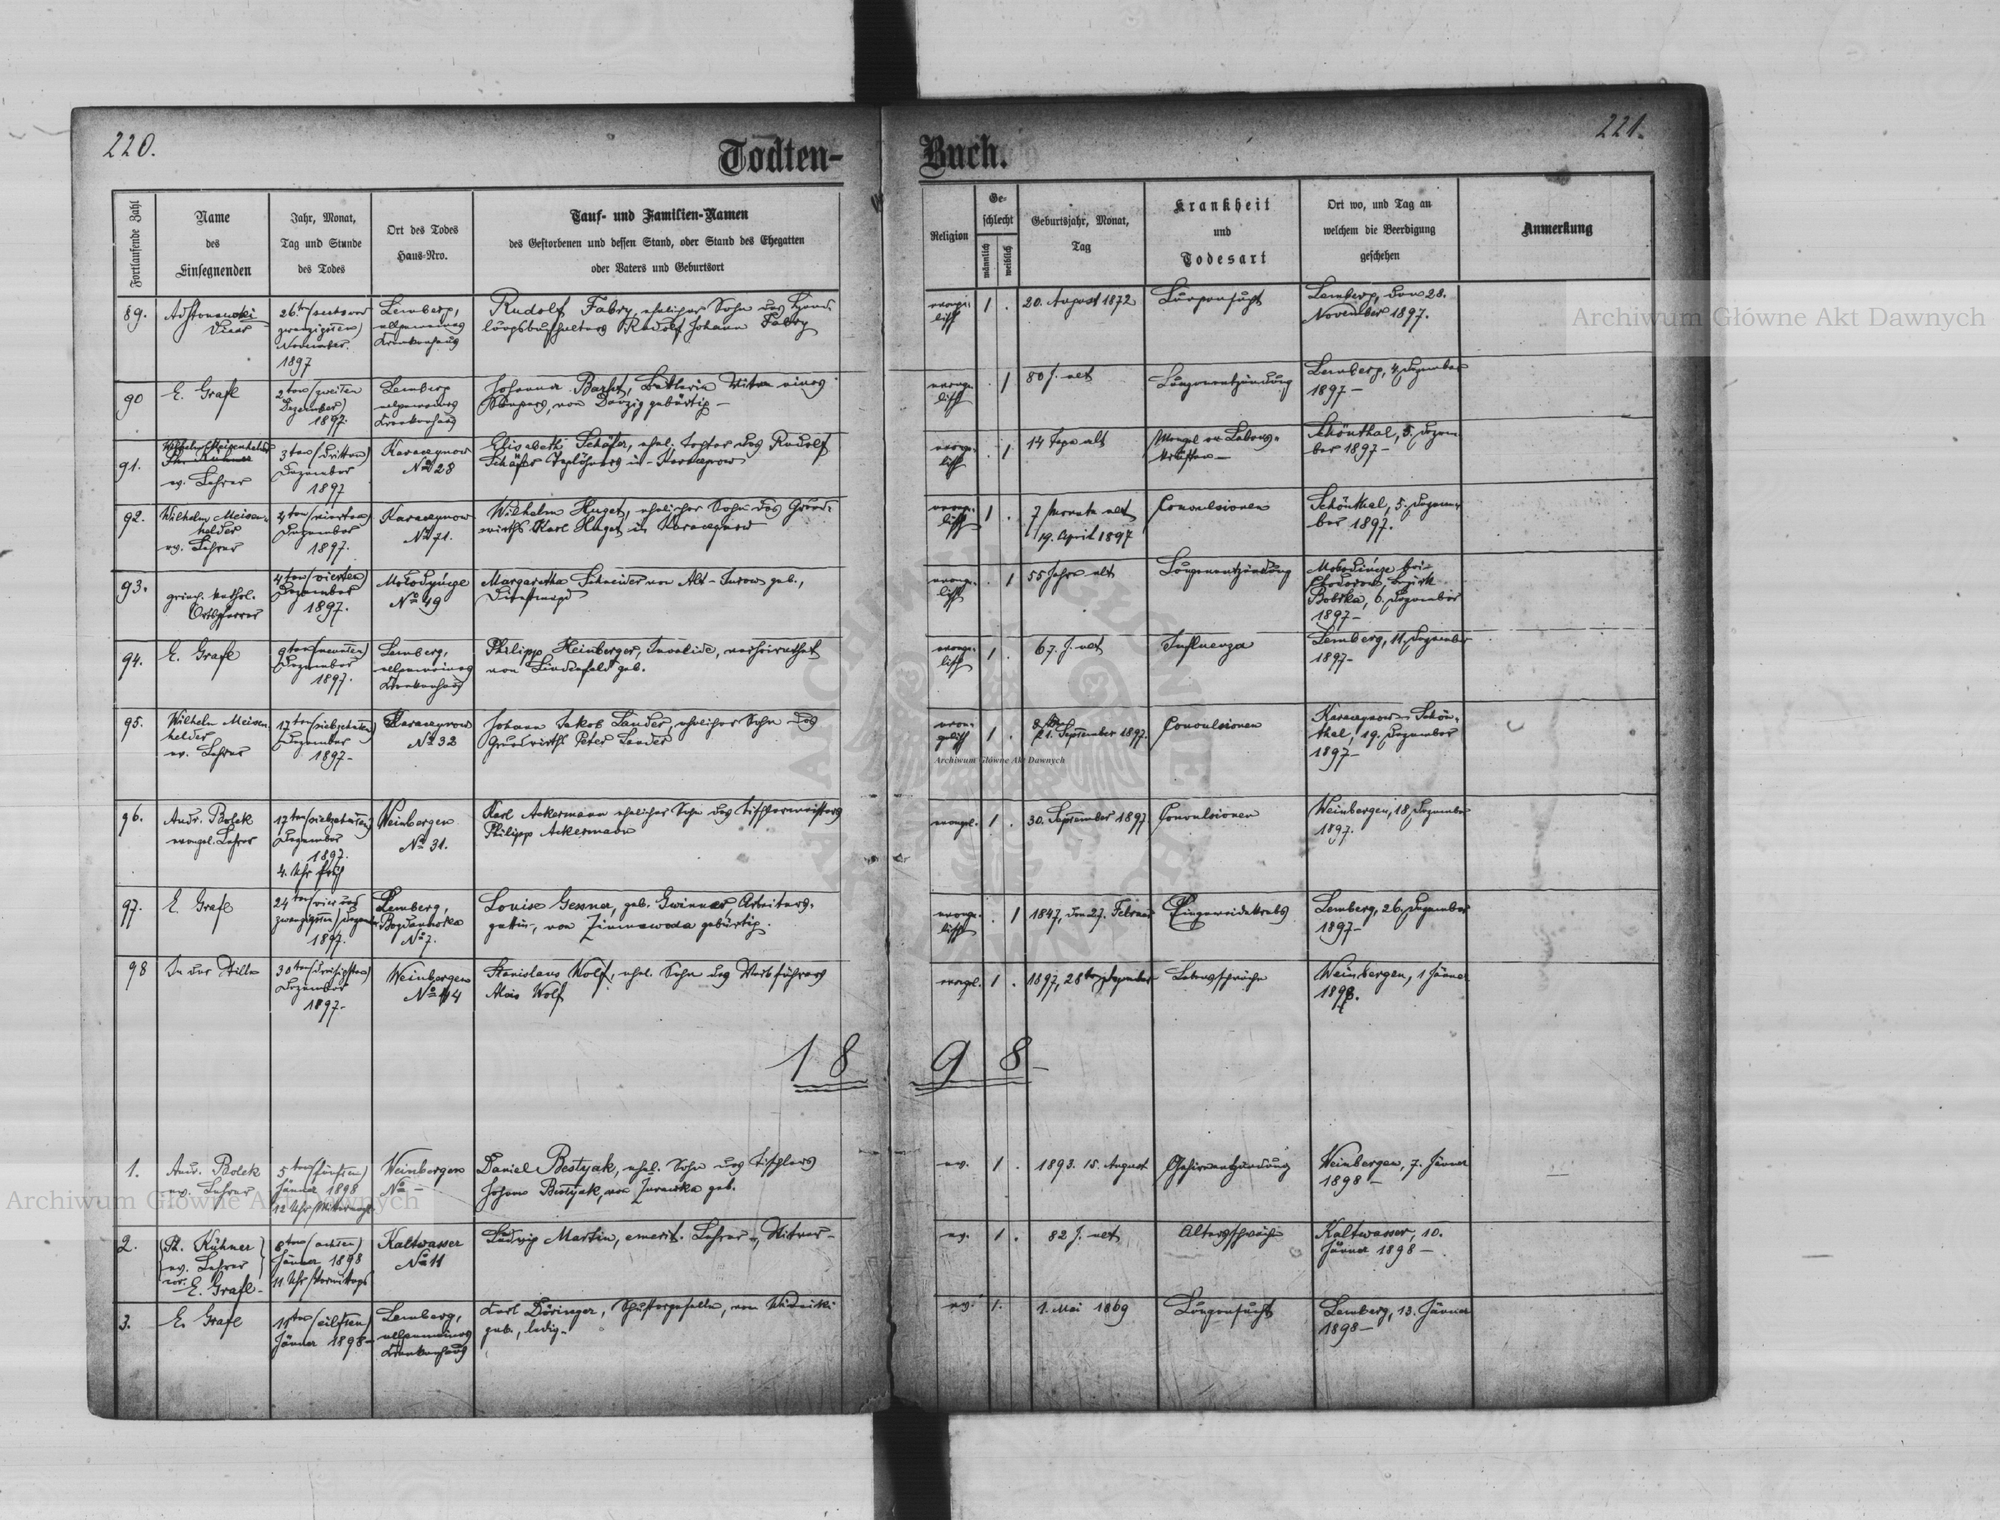 220.
Todten-
Fortlaufende Zahl
Name
des
Einsegnenden
Jahr, Monat,
Tag und Stunde
des Todes
Ort des Todes
Haus-Nro.
Tauf- und Familien-Namen
des Gestorbenen und dessen Stand, oder Stand des Ehegatten
oder Vaters und Geburtsort
89.
1897
Lemberg,
allgemeines
Krankenhaus
Rudolf Fabry, ehelicher Sohn des
Rudolf Johann Fabry
90
E. Grafl
2ten (zweiten)
Dezember
1897.
Lemberg
allgemeines
Krankenhaus
Johanna
von Danzig gebürtig –
91.
ev. Lehrer
3ten (dritten)
Dezember
1897
Karaczynow
No 28
Elisabeth Schäfer, ehel. Tochter des Rudolf
Schäfer Taglöhners in Karaczynow
92.
Wilhelm Meisen-
helder
ev. Lehrer
4ten (vierten)
Dezember
1897.
Karaczynow
No 71.
Wilhelm Huget, ehelicher Sohn des Grund-
wirths Karl Huget in Karaczynow
93.
griech. kathol.
Ortspfarrer
4ten (vierten)
Dezember
1897.
No 49
Margaretha Schneider von Alt-Jurow geb.,
Dienstmagd
94.
E. Grafl
9ten (neunten)
Dezember
1897.
Lemberg,
allgemeines
Krankenhaus
Philipp Heinberger, Invalide, verheirathet
von Lindenfeld geb.
95.
Wilhelm Meisen-
helder
ev. Lehrer
17ten (siebzehnten)
Dezember
1897 –
Karaczynow
No 32
Johann Jakob Lander, ehelicher Sohn des
Grundwirths Peter Lander
96.
Andr. Bolek
evangel. Lehrer
17ten (siebzehnten)
Dezember
1897.
4. Uhr früh
Weinbergen
No 31.
Karl Ackermann ehelicher Sohn des Tischlermeisters
Philipp Ackermann
97.
E. Grafl
24ten (vier und
zwanzigsten) Dezember
1897.
Lemberg,
Bogdanowka
No 7.
Louise Gessner, geb. Gwinner, Arbeiters-
gattin, von Zimnawoda gebürtig.
98
In der Stille
30ten (dreißigsten)
Dezember
1897.
Weinbergen
Stanislaus Wolf, ehel. Sohn des Werkführers
Alois Wolf
18
1.
Andr. Bolek
ev. Lehrer
5ten (fünften)
Jänner 1898
12 Uhr Mitternacht
Weinbergen
No –
Daniel Bestyak, ehel. Sohn des Tischlers
Johann Bestyak, geb.
2.
Ph. Kühner
ev. Lehrer
E. Grafl –
8ten (achten)
Jänner 1898
11 Uhr Vormittags
Kaltwasser
No 11
Ludwig Martin, emerit. Lehrer, Witwer –
3.
E. Grafl
11ten (eilften)
Jänner 1898 –
Lemberg,
allgemeines
Krankenhaus
Karl Döringer, Schustergeselle, von
geb., ledig –
221.
Buch.
Religion
Ge-
schlecht
männlich
weiblich
Geburtsjahr, Monat,
Tag
Krankheit
und
Todesart
Ort wo, und Tag an
welchem die Beerdigung
geschehen
Anmerkung
evange-
lisch
1 .
20. August 1872
Lungensucht
Lemberg, den 28.
November 1897.
evange-
lisch
. 1
80 J. alt
Lungenentzündung
Lemberg, 4. Dezember
1897 –
evange-
lisch
. 1.
14 Tage alt
Mangel an Lebens-
kräften –
Schönthal, 5. Dezem-
ber 1897 –
evange-
lisch
1 .
7 Monate alt
19. April 1897
Convulsionen
Schönthal, 5. Dezem-
ber 1897.
evange-
lisch
. 1
55 Jahre alt
Lungenentzündung
bei
Chodorow, Bezirk
Bobrka, 6. Dezember
1897 –
evange-
lisch
1 .
67. J. alt
Influenza
Lemberg, 11. Dezember
1897 –
evan-
gelisch
1 .
21. September 1897.
Convulsionen
Karaczynow – Schön-
thal, 19. Dezember
1897 –
evangel.
1 .
30. September 1897
Convulsionen
Weinbergen, 18. Dezember
1897.
evange-
lisch
. 1
1847, den 27. Februar
Eingeweidekrebs
Lemberg, 26. Dezember
1897 –
evangel.
1 .
1897, 28ten Dezember
Lebensschwäche
Weinbergen, 1 Jänner
1898.
98 –
ev.
1 .
1893. 15. August
Gehirnentzündung
Weinbergen, 7. Jänner
1898 –
ev.
1 .
82 J. alt
Altersschwäche
Kaltwasser, 10.
Jänner 1898 –
ev.
1.
1. Mai 1869
Lungensucht
Lemberg, 13. Jänner
1898 –
Archiwum Główne Akt Dawnych
Archiwum Główne Akt Dawnych
Archiwum Główne Akt Dawnych